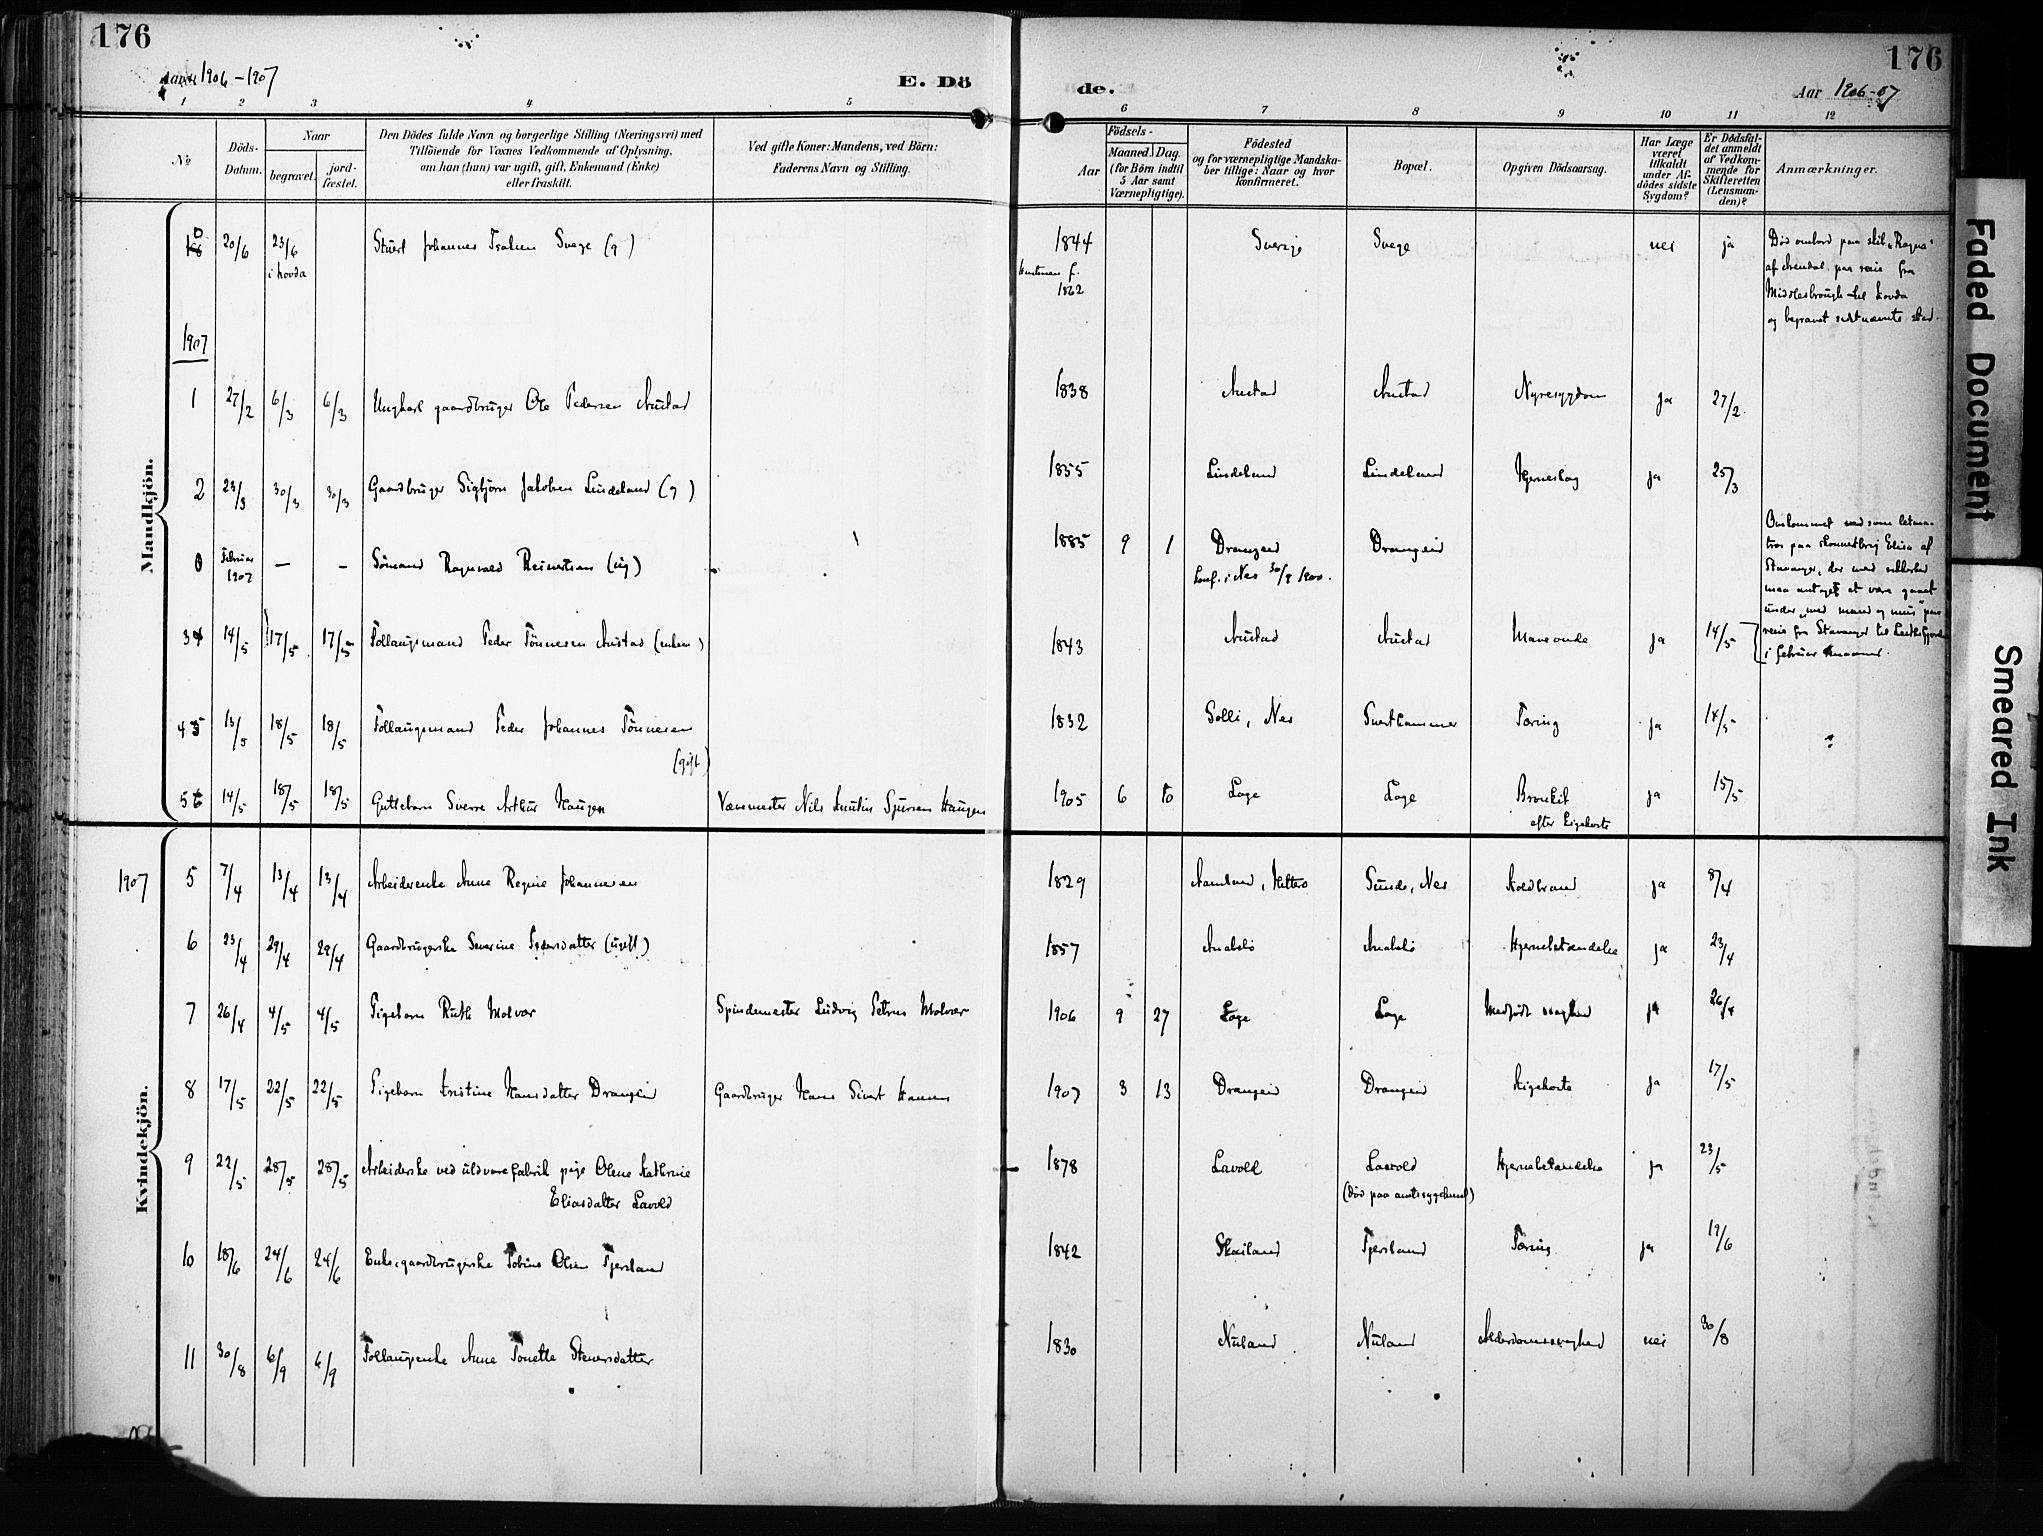 176
176
Aaret 1906-1907
E. Dö
de.
Aar 1906-07
1 2 3 4 5 6 7 8 9 10 11 12
№
Döds-
Datum.
Naar
begravet.
jord-
fæstet.
Den Dödes fulde Navn og borgerlige Stilling (Næringsvei) med
Tilföiende for Voxnes Vedkommende af Oplysning.
om han (hun) var ugift, gift, Enkemand (Enke)
eller fraskilt.
Ved gifte Koner: Mandens, ved Börn:
Faderens Navn og Stilling.
Födsels-
Aar
Maaned. Dag.
(for Børn indtil
5 Aar samt
Værnepligtige).
Födested
og for værnepligtige Mandska-
ber tillige: Naar og hvor
konfirmeret.
Bopæl.
Opgiven Dödsaarsag.
Har Læge
været
tilkaldt
under Af-
dödes sidste
Sygdom?
Er Dødsfal-
det anmeldt
af Vedkom-
mende for
Skifteretten
(Lensman-
den)?
Anmærkninger.
Mandkjön.
0 20/6 23/6 Johannes Svege (g) 1844 Sverige Svege nei ja Död ombord paa skib "Ragna"
i Kovda 1862 af Arendal paa reis fra
Middlesbrough til Kovda
og begravet sidstnævnte sted.
1907
1 27/2 6/3 6/3 Ungkarl gaardbruger Ole Pedersen Austad 1838 Austad Austad Nyresygdom ja 27/2
2 23/3 30/3 30/3 Gaardbruger Sigbjörn Jakobsen Lindeland (g) 1855 Lindeland Lindeland Hjerneslag ja 25/3
0 Februar
1907 — — Sömand Ragnvald Reinertsen (ug) 1885 9 1 Drangeid Drangeid
Konf. i Nes 30/9 1900.
Omkommet som letma-
tros paa skonnertbrig Elisa af
Stavanger, der med sikkerhed
maa antages at være gaaet
under "med mand og mus" paa
reis fra Stavanger til
i februar maaned.
3 14/5 17/5 17/5 Follaugsmand Peder Tönnesen Austad (enkem) 1843 Austad Austad Maveonde ja 14/5
4 13/5 18/5 18/5 Follaugsmand Peder Johannes Tönnesen 1832 Solli, Nes Svarthammer Tæring ja 14/5
(gift)
5 14/5 18/5 18/5 Guttebarn Sverre Arthur Haugen Vævmester Nils Sjursen Haugen 1905 6 10 Loge Loge Bronkit ja 15/5
efter Kigehoste
1907
Kvindekjön.
5 7/4 13/4 13/4 Arbeiderenke Anne Regine Johannesen 1829 Aamland, Hitterø Sunde, Nes Koldbrand ja 8/4
6 23/4 29/4 29/4 Gaardbrugerske Severine Pedersdatter (ugift) 1857 Anabelø Anabelø Hjernebetændelse ja 23/4
7 26/4 4/5 4/5 Pigebarn Ruth Molvær Spindemester Ludvig Petrus Molvær 1906 9 27 Loge Loge Medfödt svaghed ja 26/4
8 17/5 22/5 22/5 Pigebarn Kristine Hansdatter Drangeid Gaardbruger Hans Sivert Hansen 1907 3 13 Drangeid Drangeid Kigehoste ja 17/5
9 22/5 28/5 28/5 Arbeiderske ved uldvarefabrik pige Olene Kathrine 1878 Lavold Lavold Hjernebetændelse ja 23/5
Eliasdatter Lavold (död paa amtssygehus)
10 18/6 24/6 24/6 Enke, gaardbrugerske Tobine Olsen Fjersland 1842 Skailand Fjersland Tæring ja 19/6
11 30/8 6/9 6/9 Follaugsenke Anne Tonette Steversdatter 1830 Nuland Nuland Alderdomssvaghed nei 30/8
Faded Document
Smeared Ink